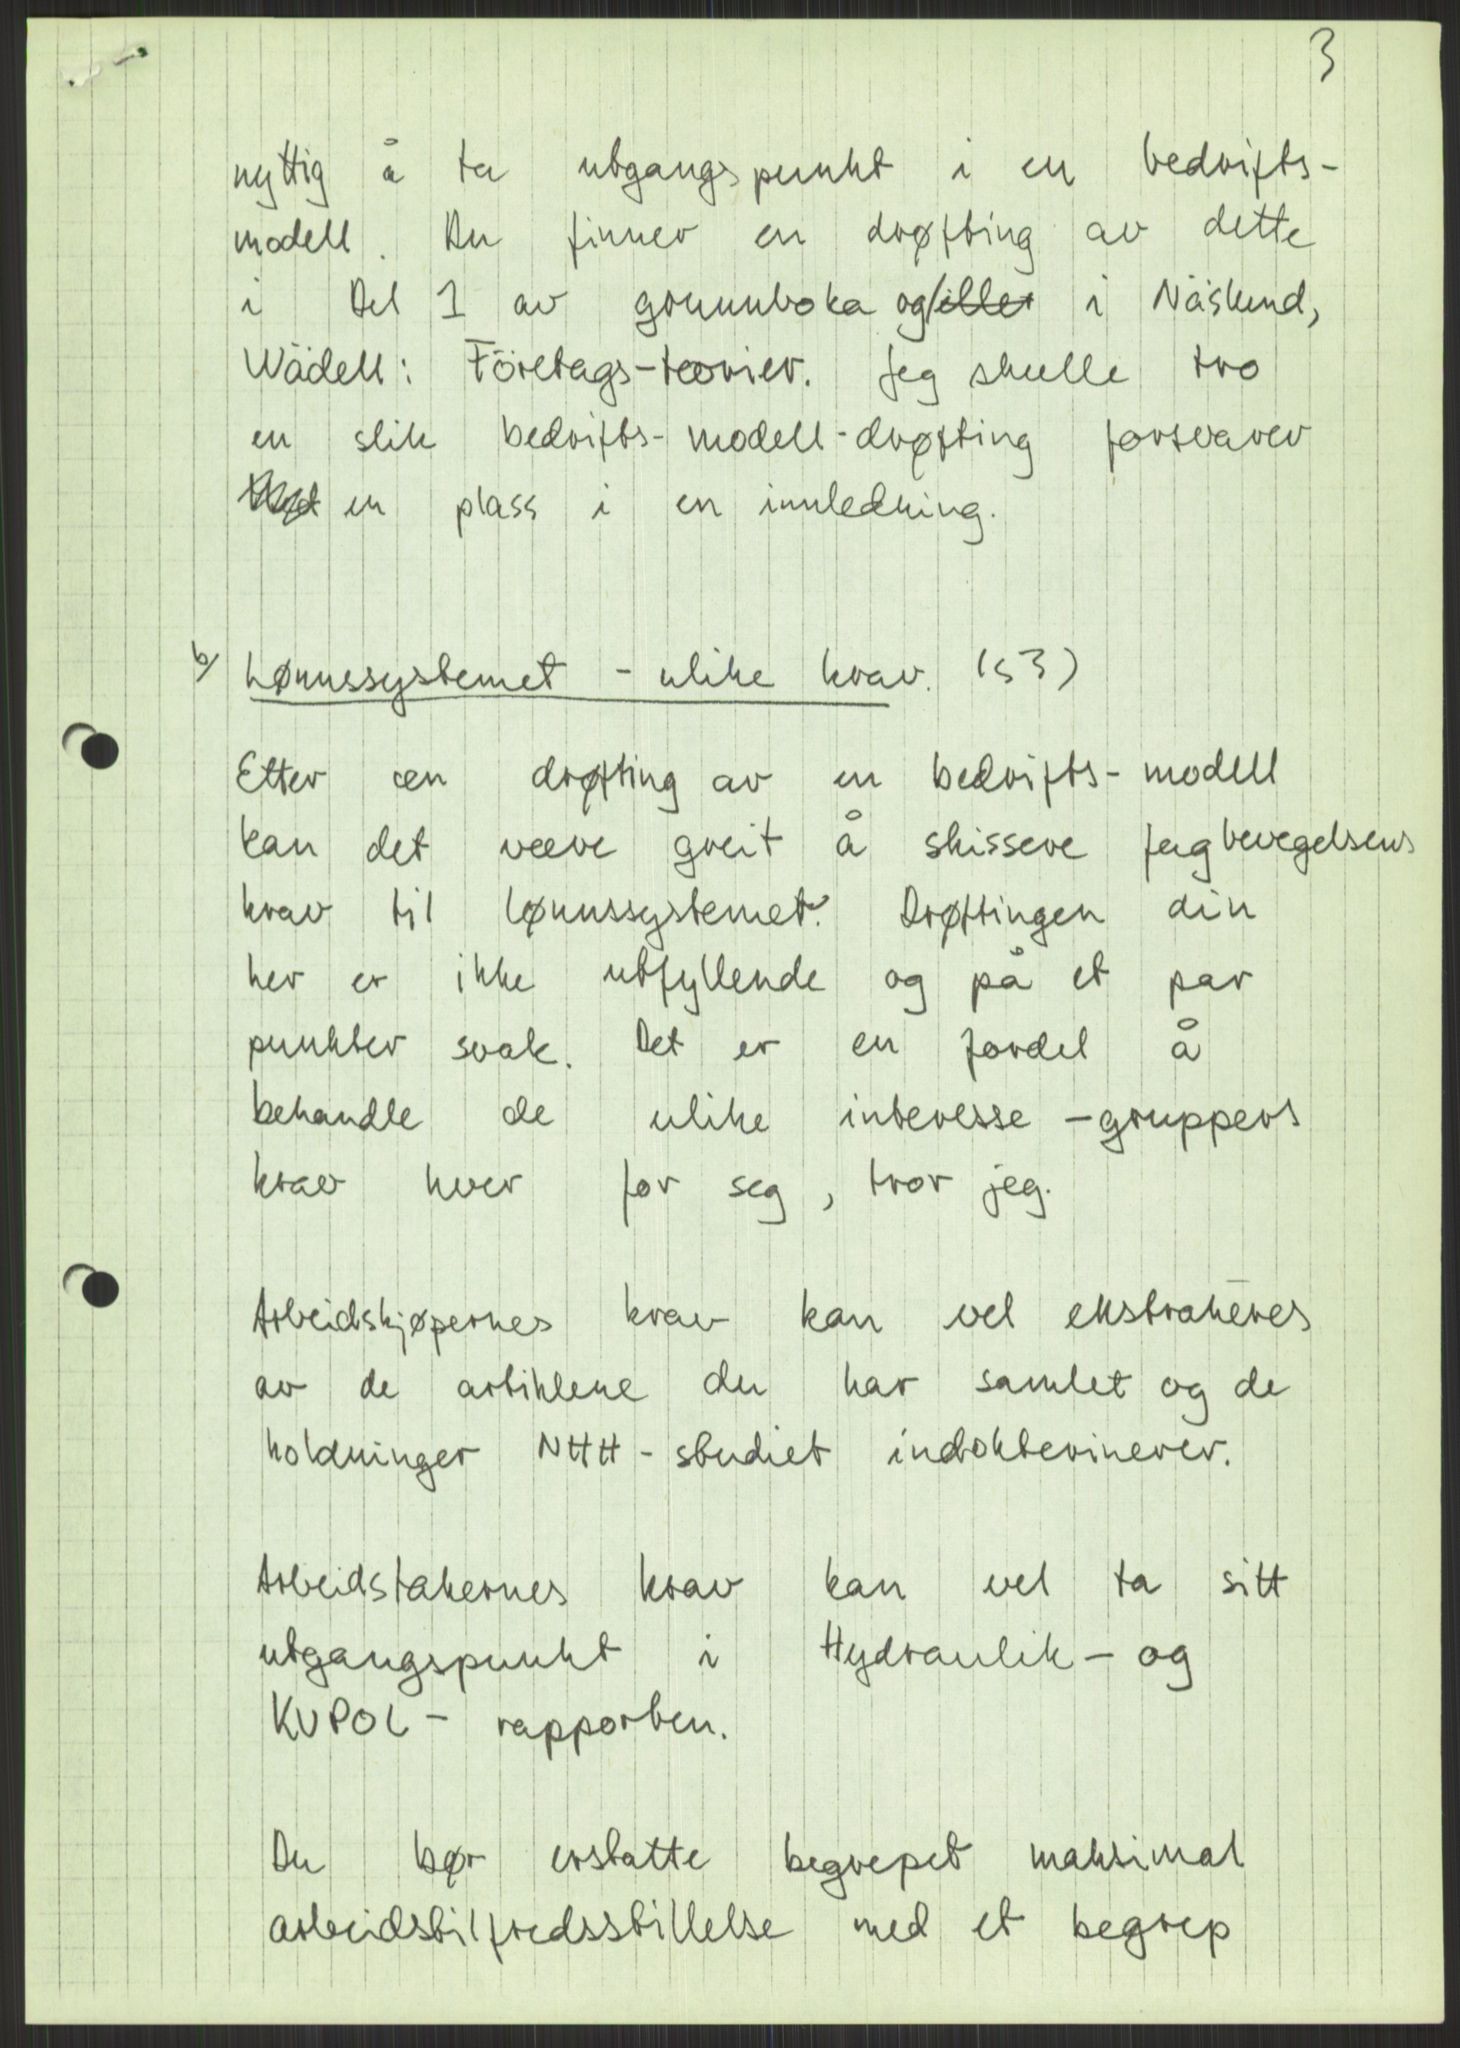 3
nyttig å ta utgangspunkt i en bedrifts-
modell. Du finner en drøfting av dette
i Del 1 av grunnboka og/eller i Näslund,
Wadell: Företags-teorier. Jeg skulle tro
en slik bedrifts-modell-drøfting forsvarer
en plass i en innledning.
b/ Lønnssystemet - ulike krav. (s 3)
Etter en drøfting av en bedrifts-modell
kan det være greit å skissere fagbevegelsens
krav til lønnssystemet. Drøftingen din
her er ikke utfyllende og på et par
punkter svak. Det er en fordel å
behandle de ulike interesse-gruppers
krav hver for seg, tror jeg.
Arbeidskjøpernes krav kan vel ekstraheres
av de artiklene du har samlet og de
holdninger NHH-studiet indokterinerer.
Arbeidstakernes krav kan vel ta sitt
utgangspunkt i Hydraulik- og
KUPOL- rapporten.
Du bør erstatte begrepet maksimal
arbeidstilfredsstillelse med et begrep